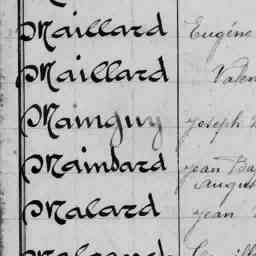 Maillard Eugéne
Maillard Valen
Mainguy Joseph
Maindard Jean Ba
August
Malard Jean